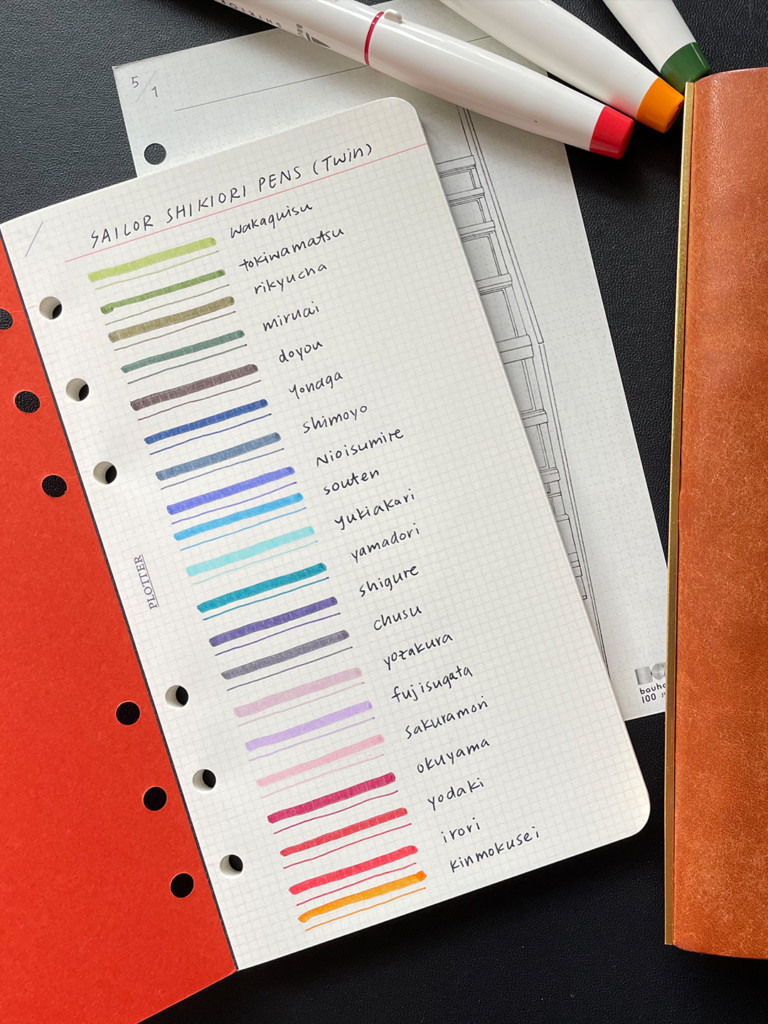 5/1
SAILOR SHIKIORI PENS (Twin)
wakaquisu
tokiwamatsu
rikyucha
miruai
doyou
Yonaga
shimoyo
Nioisumire
souten
yukiakari
yamadori
shigure
chusu
yozakura
fujisugata
sakuramori
okuyama
yodaki
irori
kinmokusei
PLOTTER
bauha
100